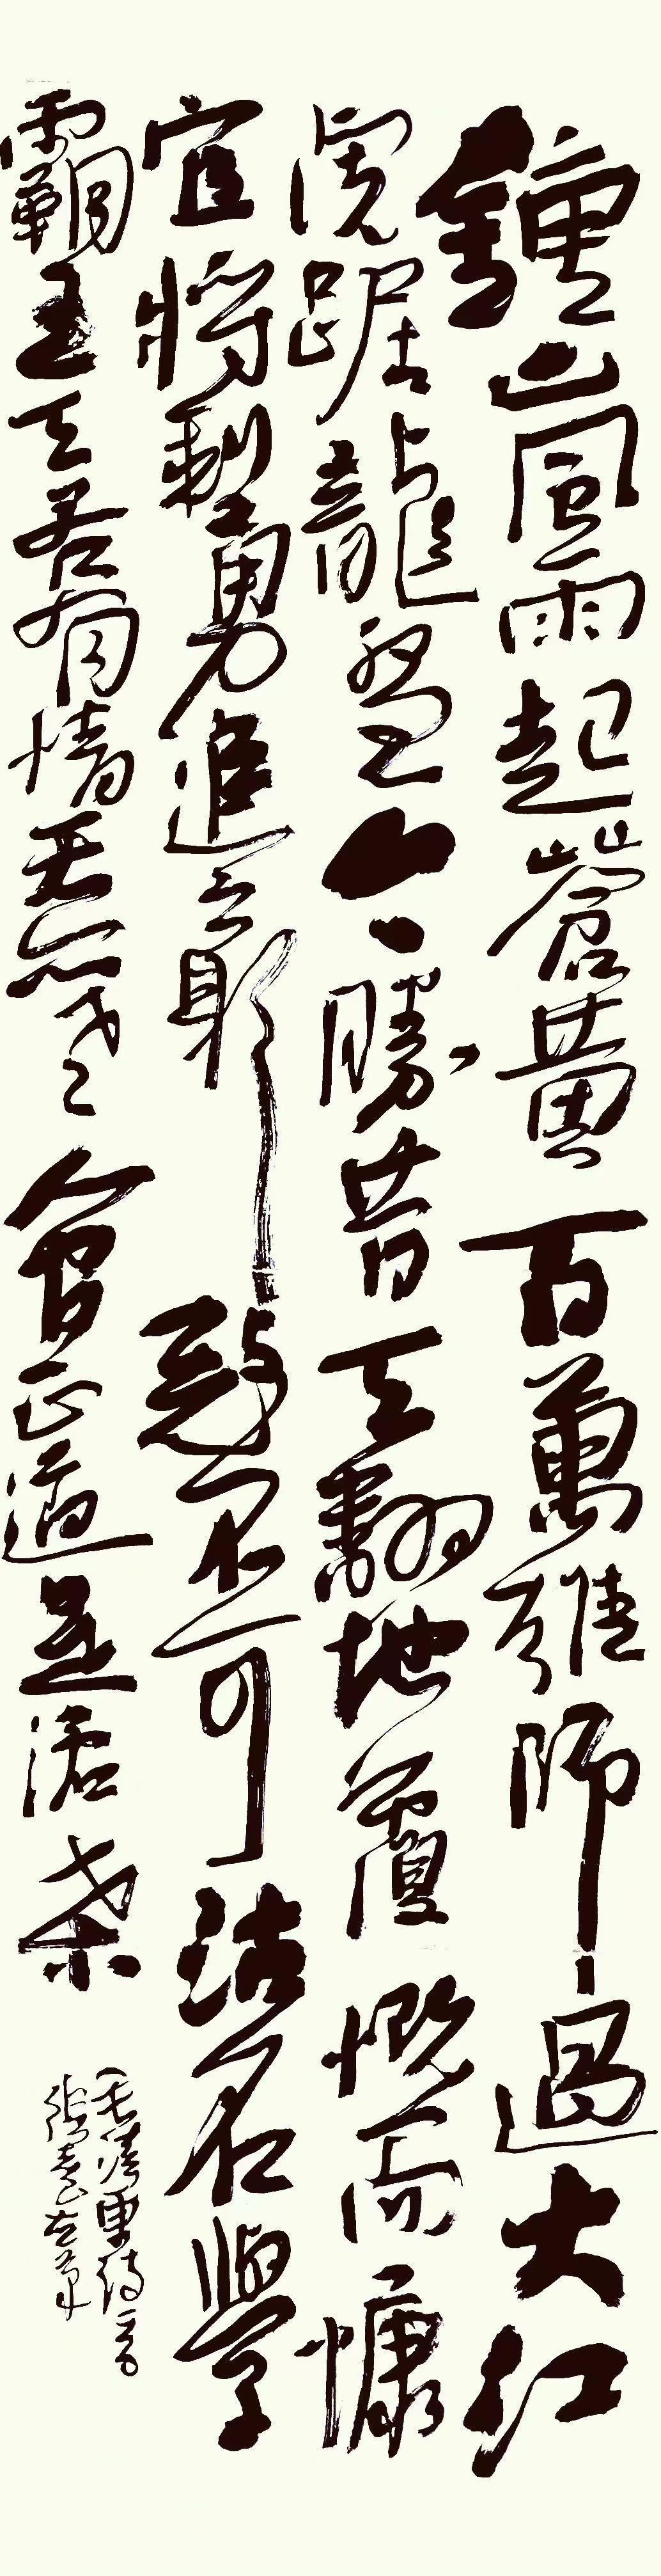 鐘山風雨起蒼黃百萬雄師過大江
虎踞龍盤今勝昔天翻地覆慨而慷
宜將剩勇追窮寇不可沽名學
霸王天若有情天亦老人間正道是滄桑
毛澤東詩一首
張山左筆